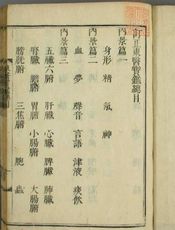 訂正東醫寶鑑總目
內景篇一
身形 精 氣 神
內景篇二
血 夢 聲音 言語 津液 痰飮
內景篇三
五臟六腑 肝臟 心臟 脾臟 肺臟
腎臟 膽腑 胃腑 小腸腑 大腸腑
膀胱腑 三焦腑 胞 蟲